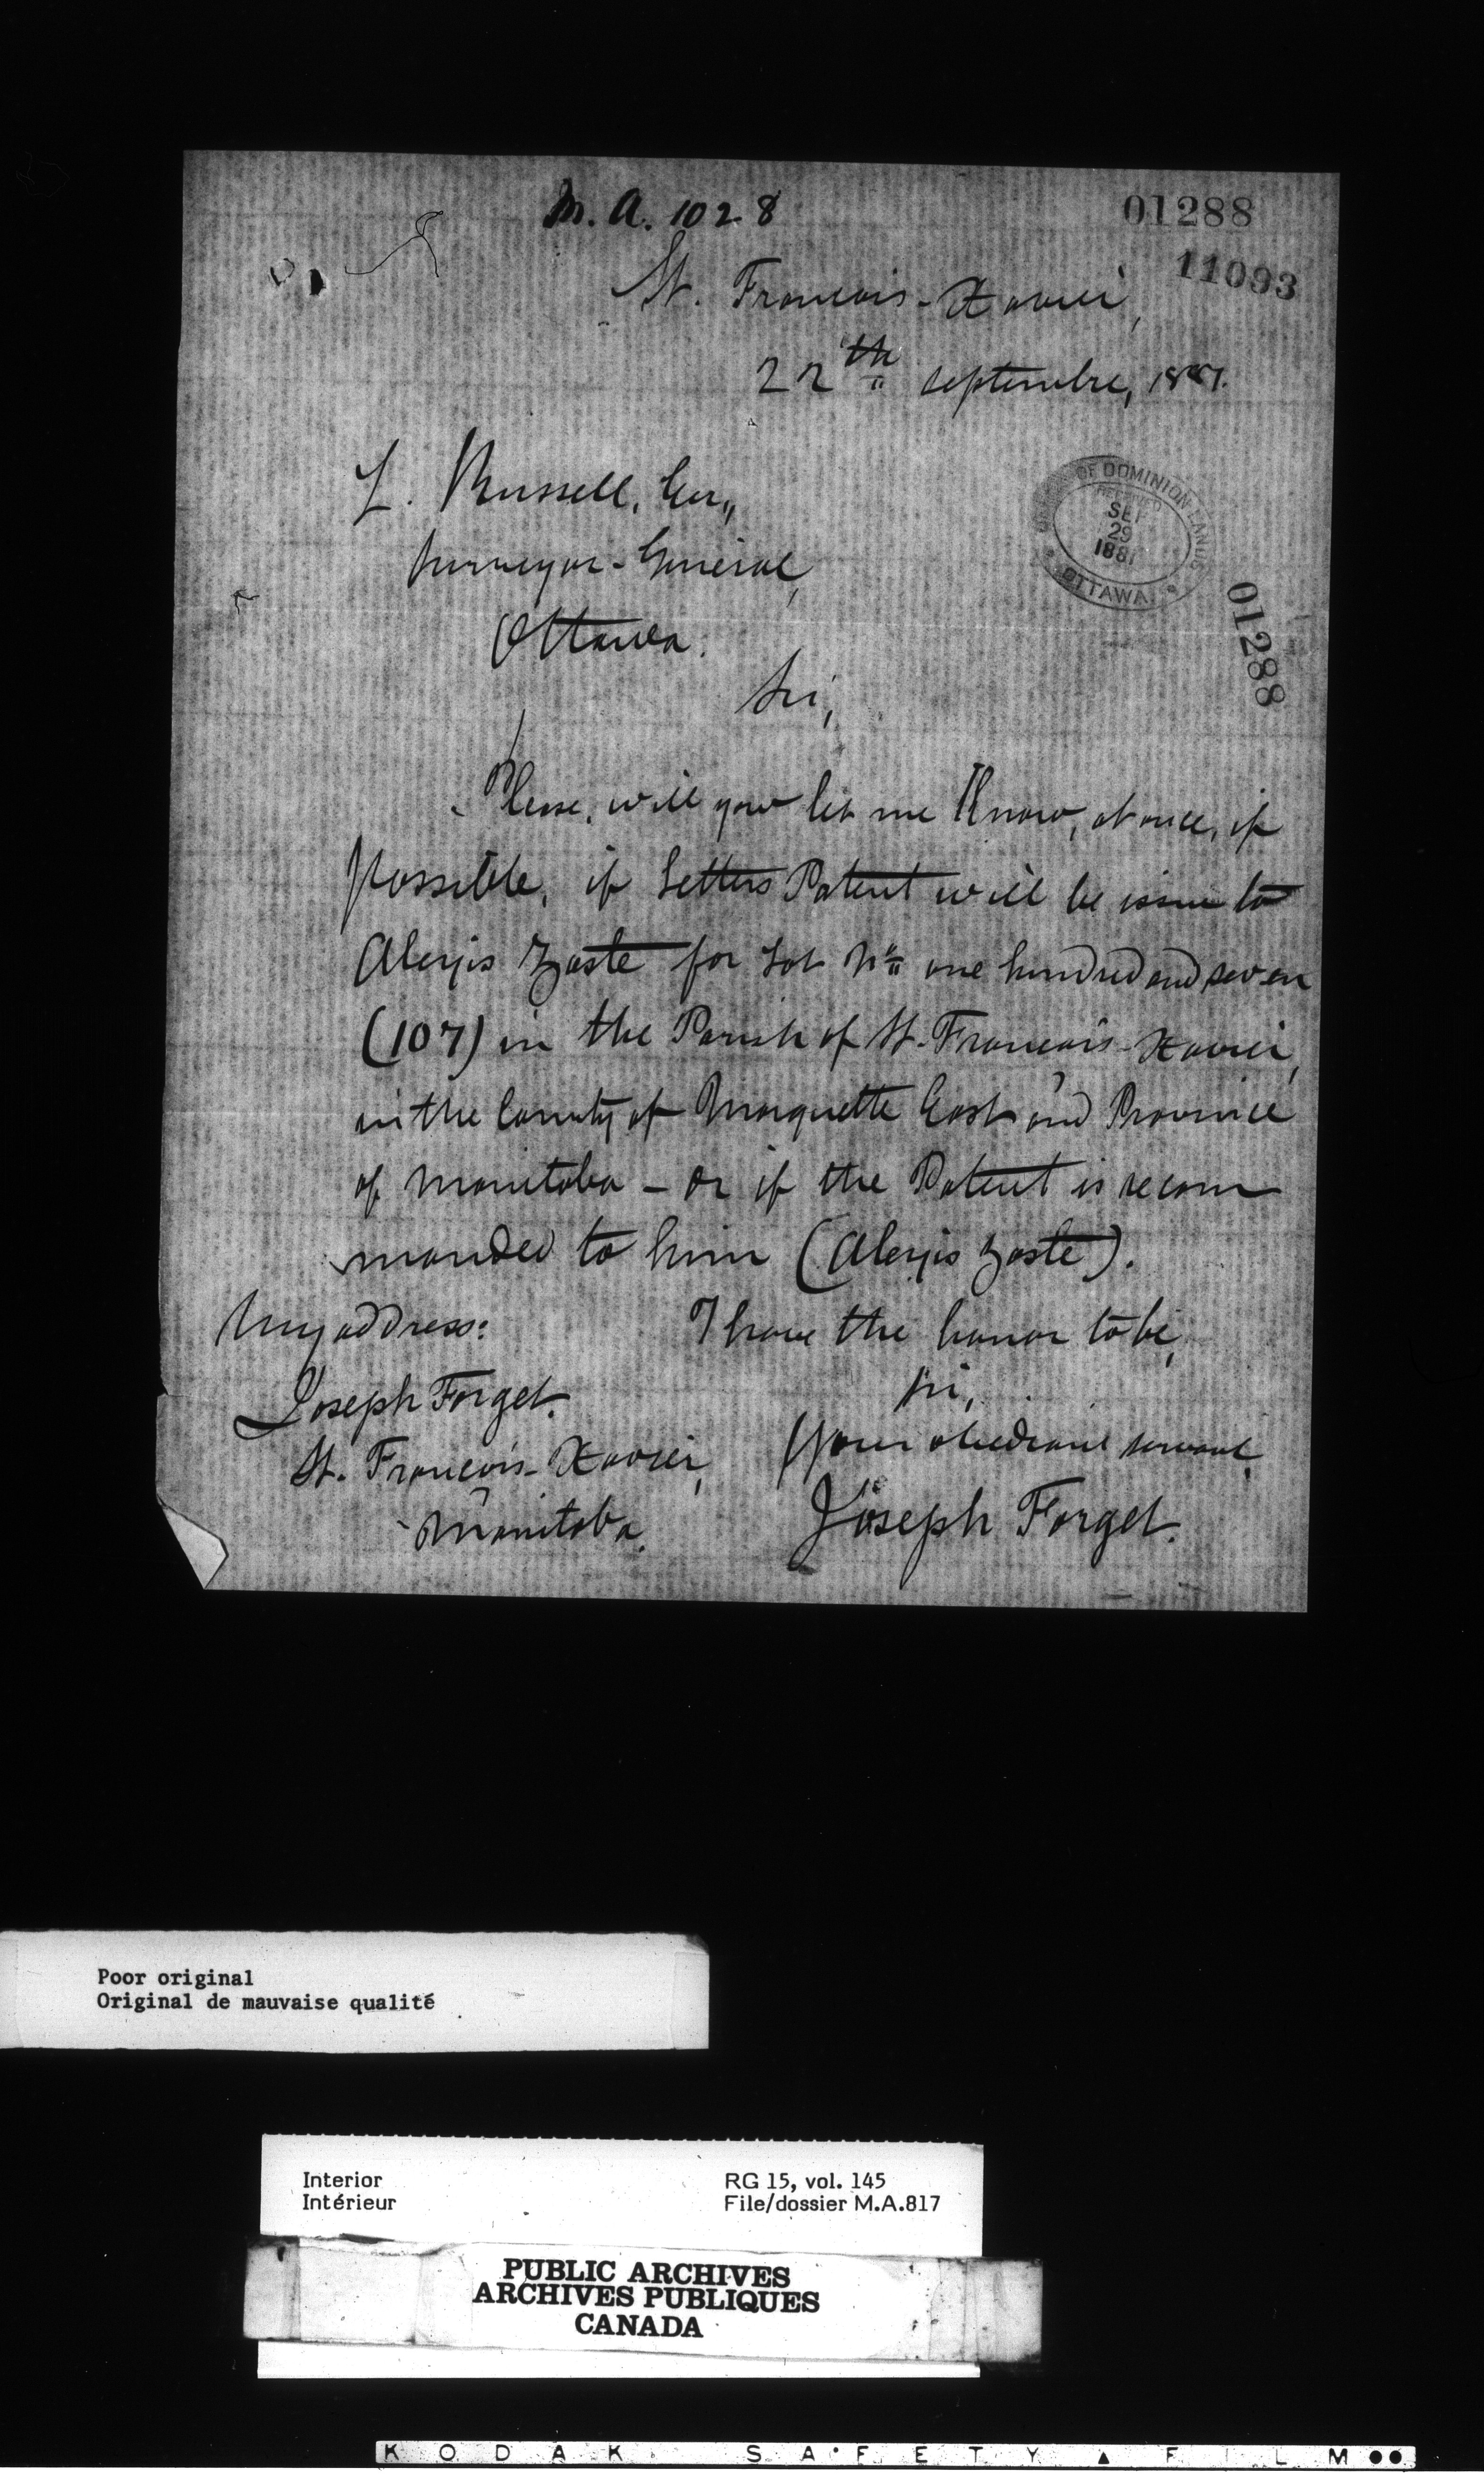 M. A. 1028
01288
11093
St. François-Xavier,
22th septembre, 1881.
L. Russell, Esr.,
Surveyor-General,
Ottawa.
OF DOMINION LANDS
RECEIVED
SEP
29
1881
OTTAWA
01288
Sir,
Please, will you let me Know, at once, if
possible, if Letters Patent will be issue to
Alexis Zaste for Lot No one hundred and seven
(107) in the Parish of St. François-Xavier,
in the County of Marquette East and Province
of Manitoba - or if the Patent is recom
manded to him (Alexis Zaste).
My address:
I have the honor to be,
Sir,
Joseph Forget.
St. François-Xavier,
Manitoba.
Your obediant servant,
Joseph Forget.
Poor original
Original de mauvaise qualité
Interior
Intérieur
RG 15, vol. 145
File/dossier M.A.817
PUBLIC ARCHIVES
ARCHIVES PUBLIQUES
CANADA
KODAK SAFETY FILM